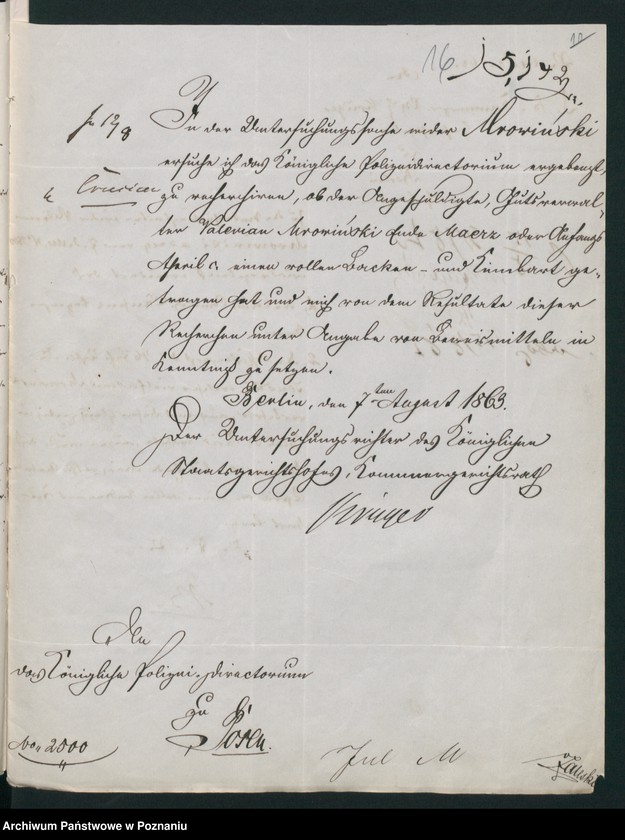 10
16
15,142
pr 12/8
In der Untersuchungssache wider Mrowiński
ersuche ich das Königliche Polizeidirectorium ergebenst,
zu recherchiren, ob der Angeschuldigte, Gutsverwal-
ter Valerian Mrowiński Ende Maerz oder Anfangs
April c. einen vollen Backen- und Kinnbart ge-
tragen hat und mich von dem Resultate dieser
Recherchen unter Angabe von Beweismitteln in
Kenntniß zu setzen.
Berlin, den 7ten August 1863.
Der Untersuchungsrichter des Königlichen
Staatsgerichtshofes, Kammergerichtsrath
Krüger
An
das Königliche Polizei-Directorium
zu
Posen.
No. 2800
Jul M
Archiwum Państwowe w Poznaniu